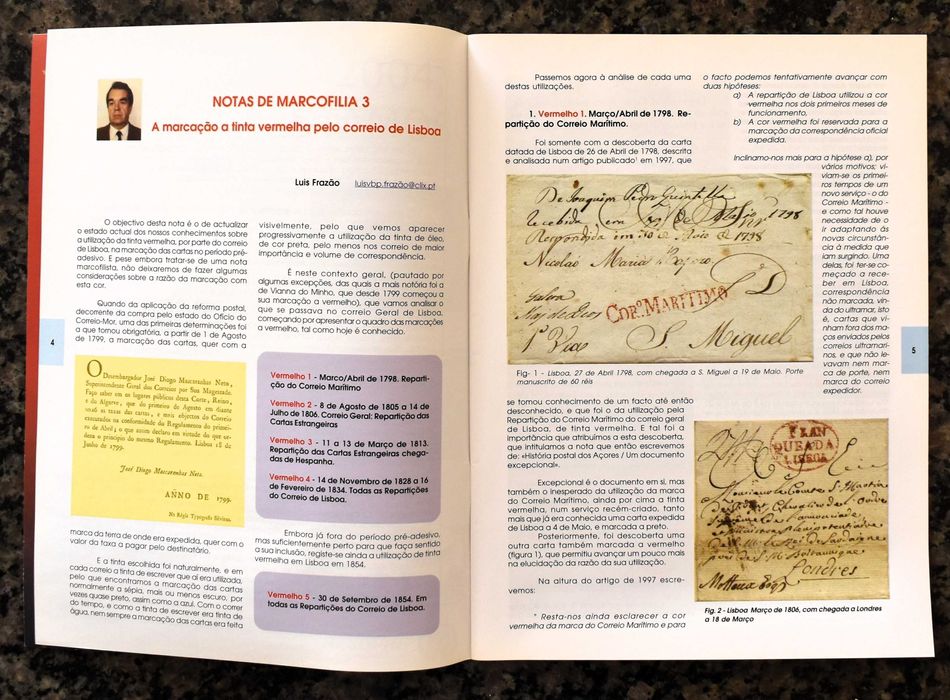 NOTAS DE MARCOFILIA 3
A marcação a tinta vermelha pelo correio de Lisboa
Luis Frazão luisvbp.frazão@clix.pt
O objectivo desta nota é o de actualizar
o estado actual dos nossos conhecimentos sobre
a utilização da tinta vermelha, por parte do correio
de Lisboa, na marcação das cartas no período pré-
adesivo. E pese embora tratar-se de uma nota
marcofilista, não deixaremos de fazer algumas
considerações sobre a razão da marcação com
esta cor.
Quando da aplicação da reforma postal,
decorrente da compra pelo estado do Ofício do
Correio-Mor, uma das primeiras determinações foi
a que tornou obrigatória, a partir de 1 de Agosto
de 1799, a marcação das cartas, quer com a
4
O Desembargador José Diogo Mascarenhas Neto,
Superintendente Geral dos Correios por Sua Magestade.
Faço saber em os lugares públicos desta Corte, Reino,
e do Algarve, que do primeiro de Agosto em diante
as taxas das cartas, e mais objectos do Correio
executados na conformidade do Regulamento do primei-
ro de Abril; o que assim declaro em virtude do que or-
dena o principio do mesmo Regulamento. Lisboa 18 de
Junho de 1799.
José Diogo Mascarenhas Neto.
ANNO DE 1799.
Na Régia Typografia Silviana.
marca da terra de onde era expedida, quer com o
valor da taxa a pagar pelo destinatário.
E a tinta escolhida foi naturalmente, e em
cada correio a tinta de escrever que aí era utilizada,
pelo que encontramos a marcação das cartas
normalmente a sépia, mais ou menos escuro, por
vezes quase preto, assim como a azul. Com o correr
do tempo, e como a tinta de escrever era tinta de
água, nem sempre a marcação das cartas era feita
visivelmente, pelo que vemos aparecer
progressivamente a utilização da tinta de óleo,
de cor preta, pelo menos nos correio de maior
importância e volume de correspondência.
É neste contexto geral, (pautado por
algumas excepções, das quais a mais notória foi a
de Vianna do Minho, que desde 1799 começou a
sua marcação a vermelho), que vamos analisar o
que se passava no correio Geral de Lisboa,
começando por apresentar o quadro das marcações
a vermelho, tal como hoje é conhecido.
Vermelho 1 - Marco/Abril de 1798. Reparti-
ção do Correio Marítimo
Vermelho 2 - 8 de Agosto de 1805 a 14 de
Julho de 1806. Correio Geral: Repartição das
Cartas Estrangeiras
Vermelho 3 - 11 a 13 de Março de 1813.
Repartição das Cartas Estrangeiras chega-
das de Hespanha.
Vermelho 4 - 14 de Novembro de 1828 a 16
de Fevereiro de 1834. Todas as Repartições
do Correio de Lisboa.
Embora já fora do período pré-adesivo,
mas suficientemente perto para que faça sentido
a sua inclusão, registe-se ainda a utilização de tinta
vermelha em Lisboa em 1854.
Vermelho 5 - 30 de Setembro de 1854. Em
todas as Repartições do Correio de Lisboa.
Passemos agora à análise de cada uma
destas utilizações.
1. Vermelho 1. Março/Abril de 1798. Re-
partição do Correio Marítimo.
Foi somente com a descoberta da carta
datada de Lisboa de 26 de Abril de 1798, descrita
e analisada num artigo publicado¹ em 1997, que
De Joaquim Pedro Quintella
Recebida em de Maio 1798
Respondida em 30 de Maio d 1798
Nicolao Maria Raposo
CORº MARITIMO
1ª Via S. Miguel
Fig- 1 - Lisboa, 27 de Abril 1798, com chegada a S. Miguel a 19 de Maio. Porte
manuscrito de 60 réis
se tomou conhecimento de um facto até então
desconhecido, e que foi o da utilização pela
Repartição do Correio Marítimo do correio geral
de Lisboa, de tinta vermelha. E tal foi a
importância que atribuímos a esta descoberta,
que intitulamos a nota que então escrevemos
de: «História postal dos Açores / Um documento
excepcional».
Excepcional é o documento em si, mas
também o inesperado da utilização da marca
do Correio Marítimo, ainda por cima a tinta
vermelha, num serviço recém-criado, tanto
mais que já era conhecida uma carta expedida
de Lisboa a 4 de Maio, e marcada a preto.
Posteriormente, foi descoberta uma
outra carta também marcada a vermelho
(figura 1), que permitiu avançar um pouco mais
na elucidação da razão da sua utilização.
Na altura do artigo de 1997 escre-
vemos:
" Resta-nos ainda esclarecer a cor
vermelha da marca do Correio Marítimo e para
o facto podemos tentativamente avançar com
duas hipóteses:
a) A repartição de Lisboa utilizou a cor
vermelha nos dois primeiros meses de
funcionamento,
b) A cor vermelha foi reservada para a
marcação da correspondência oficial
expedida.
Inclinamo-nos mais para a hipótese a), por
vários motivos; vi-
viam-se os primei-
ros tempos de um
novo serviço - o do
Correio Marítimo -
e como tal houve
necessidade de o
ir adaptando às
novas circunstân-
cia à medida que
iam surgindo. Uma
delas, foi ter-se co-
meçado a rece-
ber em Lisboa,
correspondência
não marcada, vin-
da do ultramar, isto
é, cartas que vi-
nham fora dos ma-
ços enviados pelos
correios ultramari-
nos, e que não le-
vavam nem mar-
ca de porte, nem
marca do correio
expedidor.
5
FRAN
QUEADA
LISBOA
Londres
Fig. 2 - Lisboa Março de 1806, com chegada a Londres
a 18 de Março